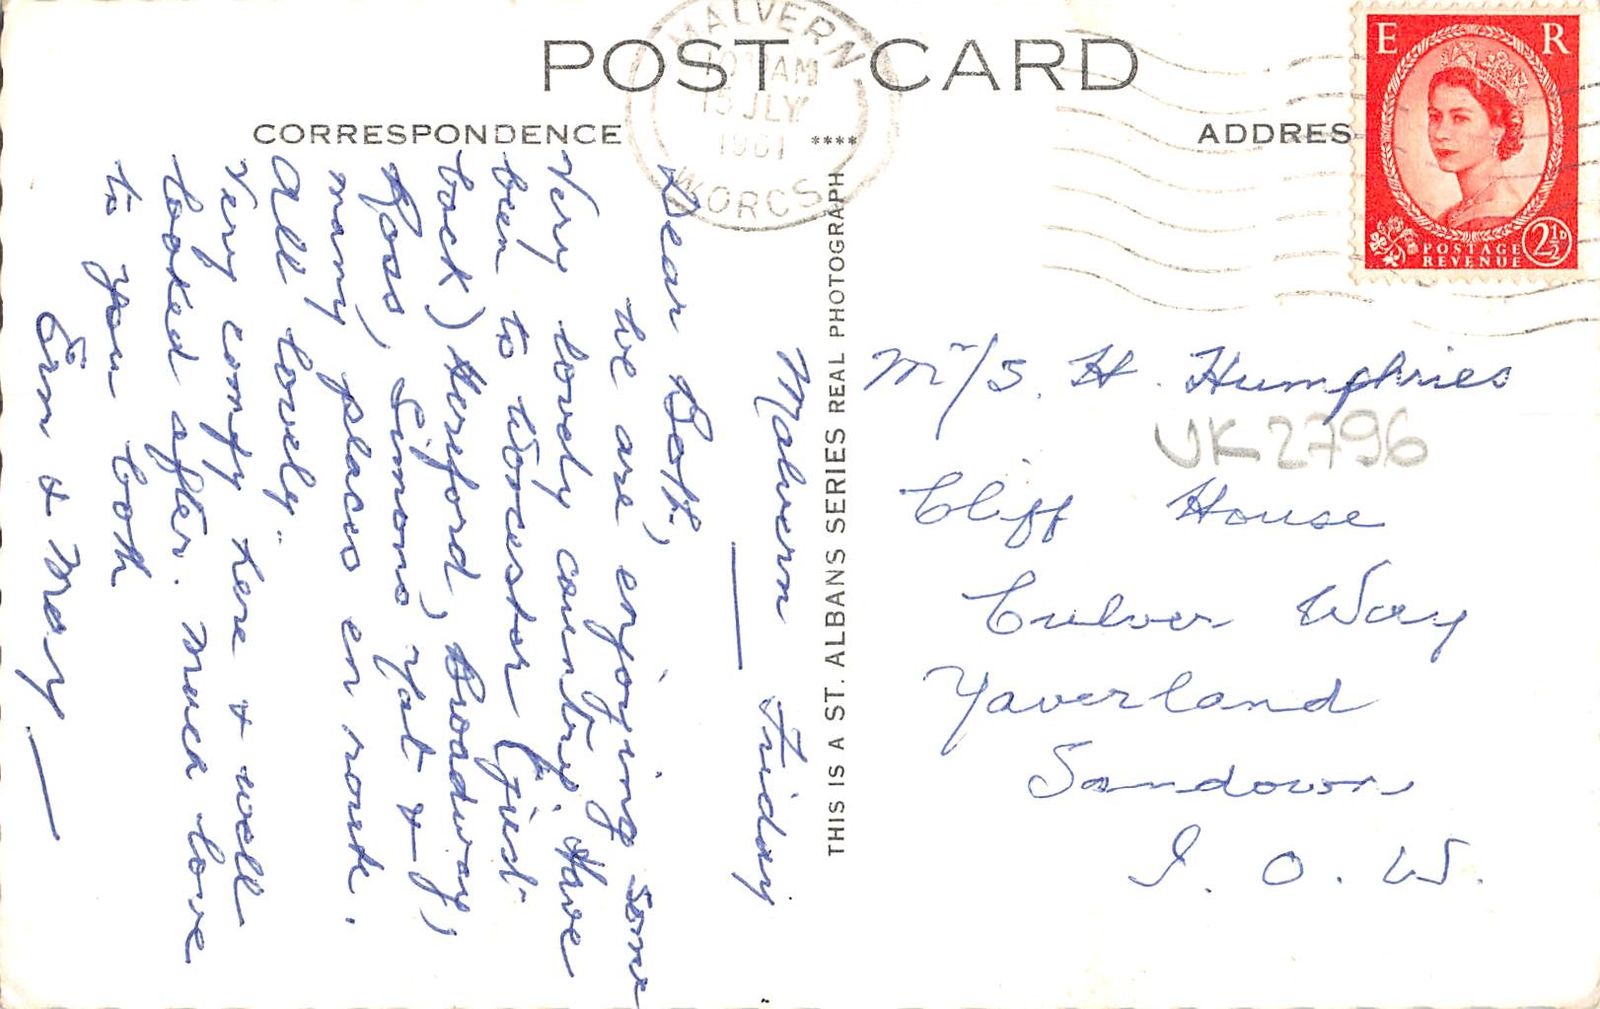 POST CARD
CORRESPONDENCE
ADDRES
MALVERN
AM
15 JLY
1961
WORCS
E R
POSTAGE
REVENUE
2½D
THIS IS A ST. ALBANS SERIES REAL PHOTOGRAPH
Malvern Friday
Dear Both,
We are enjoying some
very lovely country. Have
been to Worcester (just
back) Hereford, Broadway,
Ross, Simons Yat &
many places en route.
All lovely.
Very comfy here & well
looked after. Much love
to you both
Ern & May
Mr/s. H. Humphries
UK2796
Cliff House
Culver Way
Yaverland
Sandown
I. O. W.